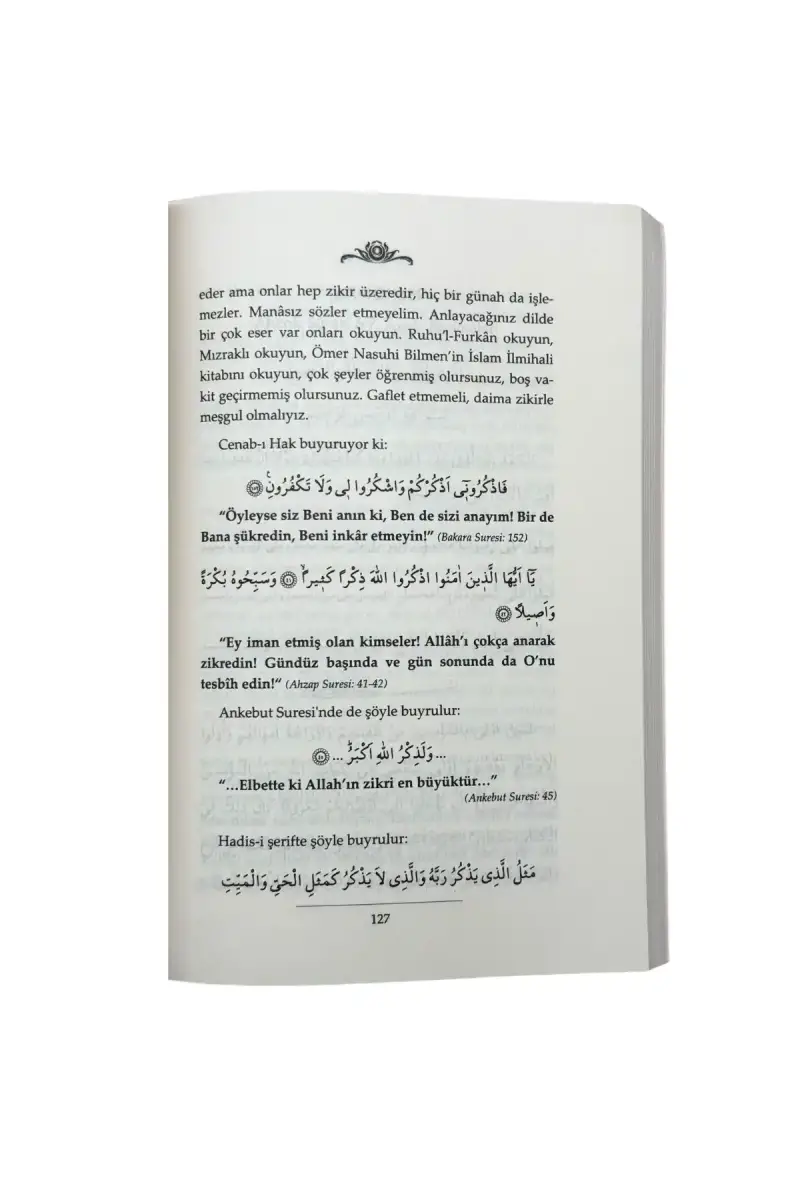 eder ama onlar hep zikir üzeredir, hiç bir günah da işle-
mezler. Manâsız sözler etmeyelim. Anlayacağınız dilde
bir çok eser var onları okuyun. Ruhu'l-Furkân okuyun,
Mızraklı okuyun, Ömer Nasuhi Bilmen'in İslam İlmihali
kitabını okuyun, çok şeyler öğrenmiş olursunuz, boş va-
kit geçirmemiş olursunuz. Gaflet etmemeli, daima zikirle
meşgul olmalıyız.
Cenab-ı Hak buyuruyor ki:
فَاذْكُرُونٖٓى اَذْكُرْكُمْ وَاشْكُرُوا لٖى وَلَا تَكْفُرُونِۚ ﴿١٥٢﴾
“Öyleyse siz Beni anın ki, Ben de sizi anayım! Bir de
Bana şükredin, Beni inkâr etmeyin!” (Bakara Suresi: 152)
يَٓا اَيُّهَا الَّذٖينَ اٰمَنُوا اذْكُرُوا اللّٰهَ ذِكْرًا كَثٖيرًاۙ ﴿٤١﴾ وَسَبِّحُوهُ بُكْرَةً
وَاَصٖيلًا ﴿٤٢﴾
“Ey iman etmiş olan kimseler! Allâh'ı çokça anarak
zikredin! Gündüz başında ve gün sonunda da O'nu
tesbîh edin!“ (Ahzap Suresi: 41-42)
Ankebut Suresi'nde de şöyle buyrulur:
... وَلَذِكْرُ اللّٰهِ اَكْبَرُۜ ... ﴿٤٥﴾
“…Elbette ki Allah'ın zikri en büyüktür…”
(Ankebut Suresi: 45)
Hadis-i şerifte şöyle buyrulur:
مَثَلُ الَّذِى يَذْكُرُ رَبَّهُ وَالَّذِى لَا يَذْكُرُ كَمَثَلِ الْحَيِّ وَالْمَيِّتِ
127